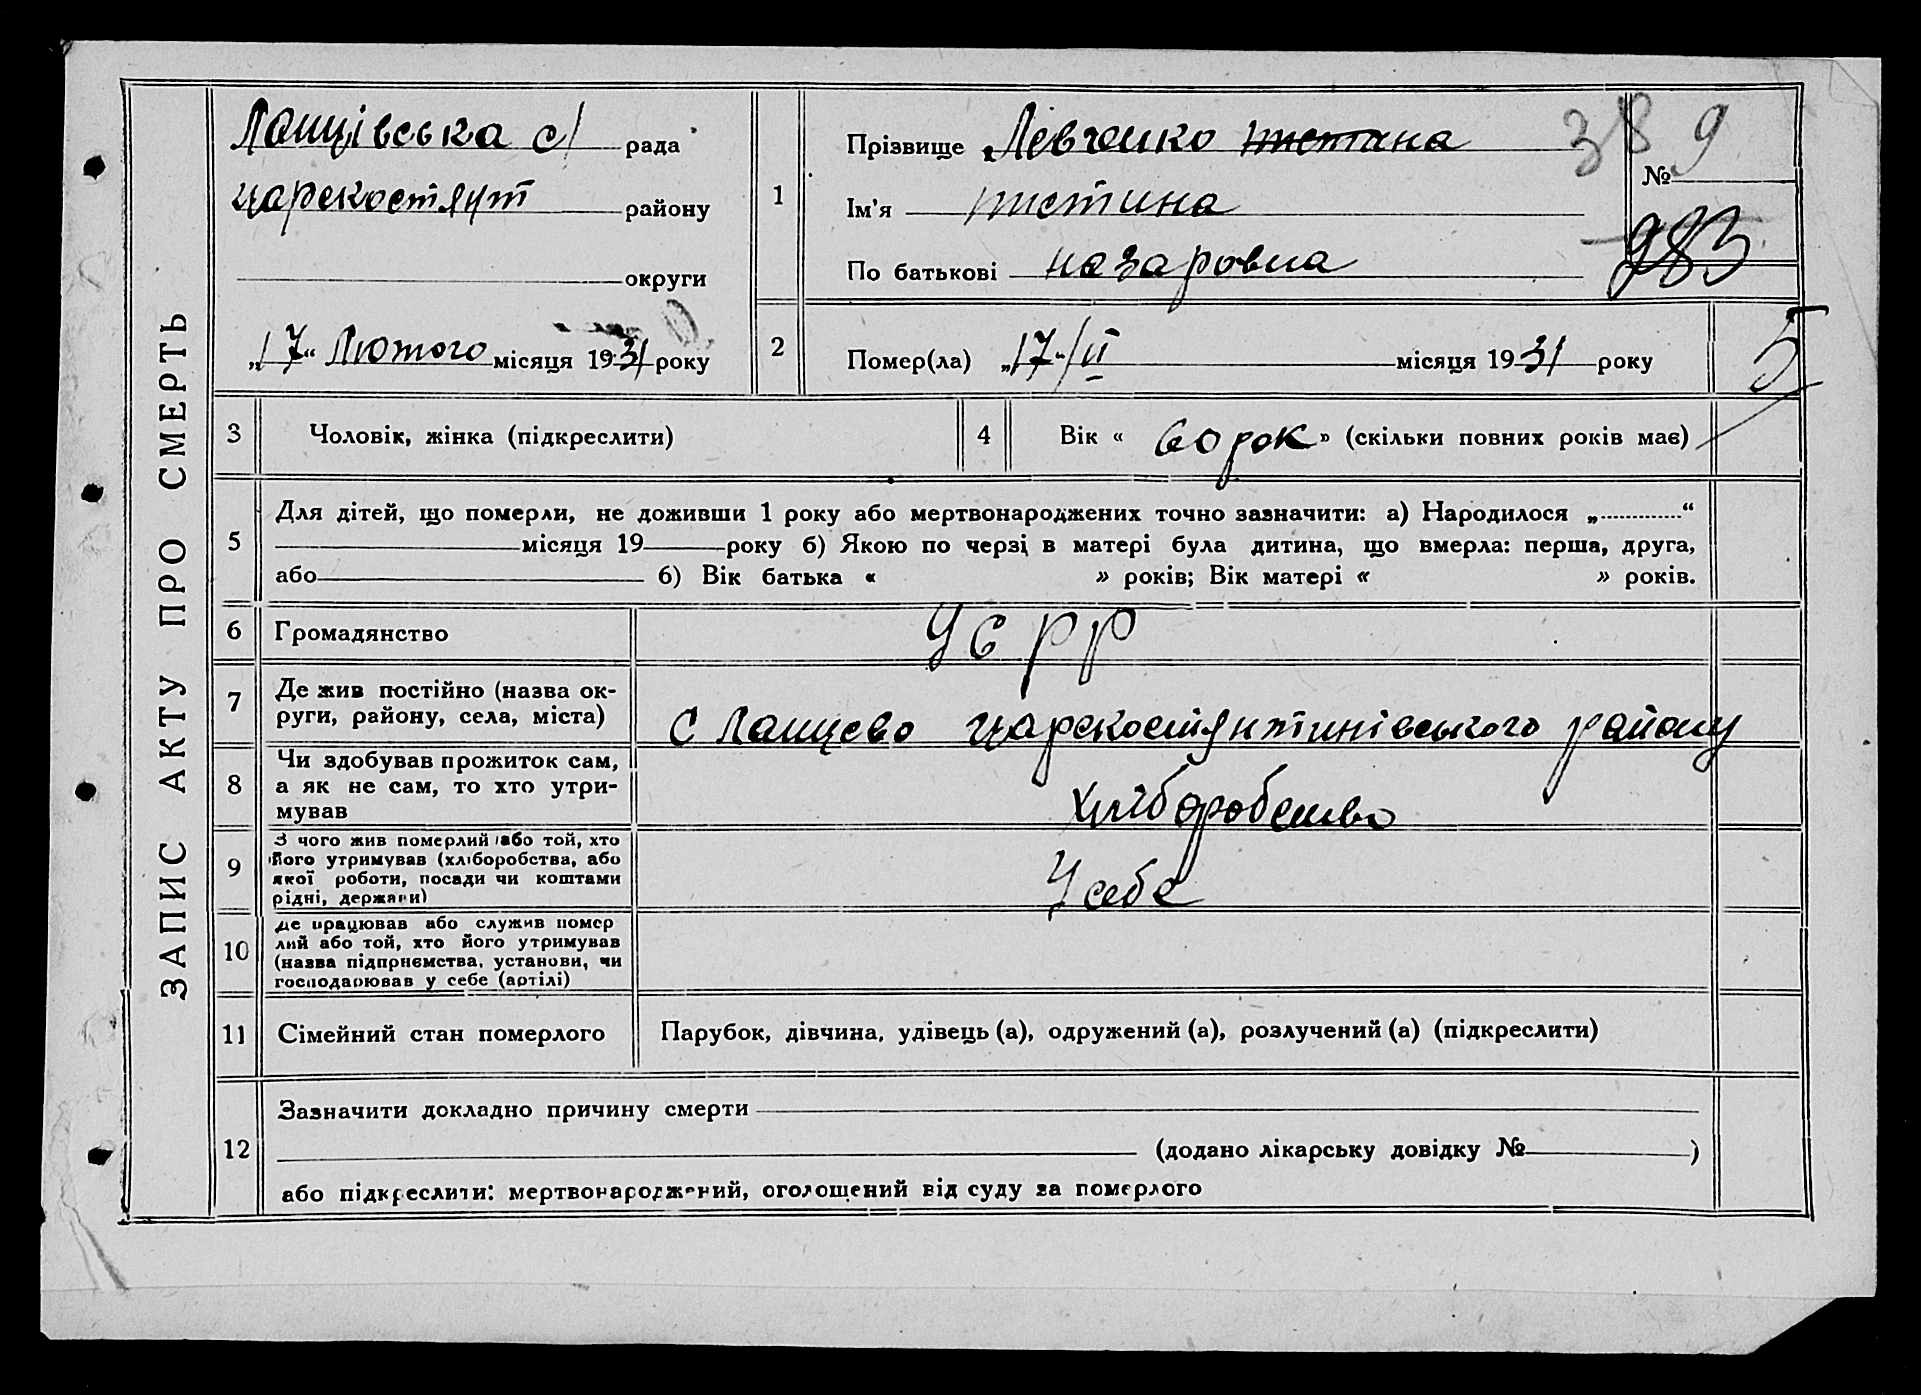 ЗАПИС АКТУ ПРО СМЕРТЬ
Ланцівська с/ рада
району
округи
„17“ Лютого місяця 1931 року
1
Прізвище Левченко
Ім’я тистина
По батькові назаровна
38
№ 9
983
2
Помер(ла) „17-/II місяця 1931 року
5
3
Чоловік, жінка (підкреслити)
4
Вік « 60 рок » (скільки повних років має)
5
Для дітей, що померли, не доживши 1 року або мертвонароджених точно зазначити: а) Народилося „ “
місяця 19 року б) Якою по черзі в матері була дитина, що вмерла: перша, друга,
або б) Вік батька « » років; Вік матері « » років.
6
Громадянство
УСРР
7
Де жив постійно (назва ок-
руги, району, села, міста)
С Ланцево району
8
Чи здобував прожиток сам,
а як не сам, то хто утри-
мував
хліборобство
9
З чого жив померлий або той, хто
його утримував (хліборобства, або
якої роботи, посади чи коштами
рідні, держави)
У себе
10
Де працював або служив помер
лий або той, хто його утримував
(назва підприємства, установи, чи
господарював у себе (артілі)
11
Сімейний стан померлого
Парубок, дівчина, удівець (а), одружений (а), розлучений (а) (підкреслити)
12
Зазначити докладно причину смерти
(додано лікарську довідку № )
або підкреслити: мертвонароджений, оголошений від суду за померлого